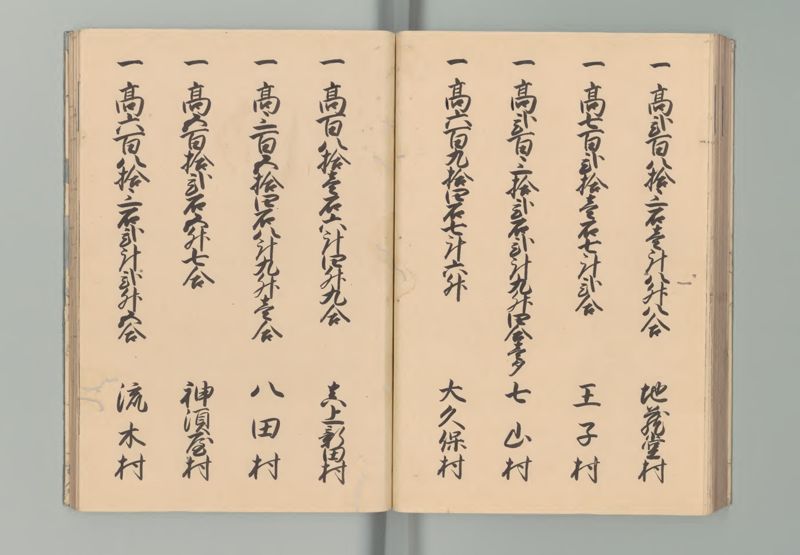 一 高弐百八拾三石壱斗八升八合 地蔵堂村
一 高七百弐拾壱石七斗弐合 王子村
一 高弐百三拾弐石弐斗九升四合壱夕 七山村
一 高六百九拾四石七斗六升 大久保村
一 高百八拾壱石六斗四升九合 真上新田村
一 高三百五拾四石八斗九升壱合 八田村
一 高五百拾弐石五升七合 神須屋村
一 高六百八拾三石弐斗弐升五合 流木村